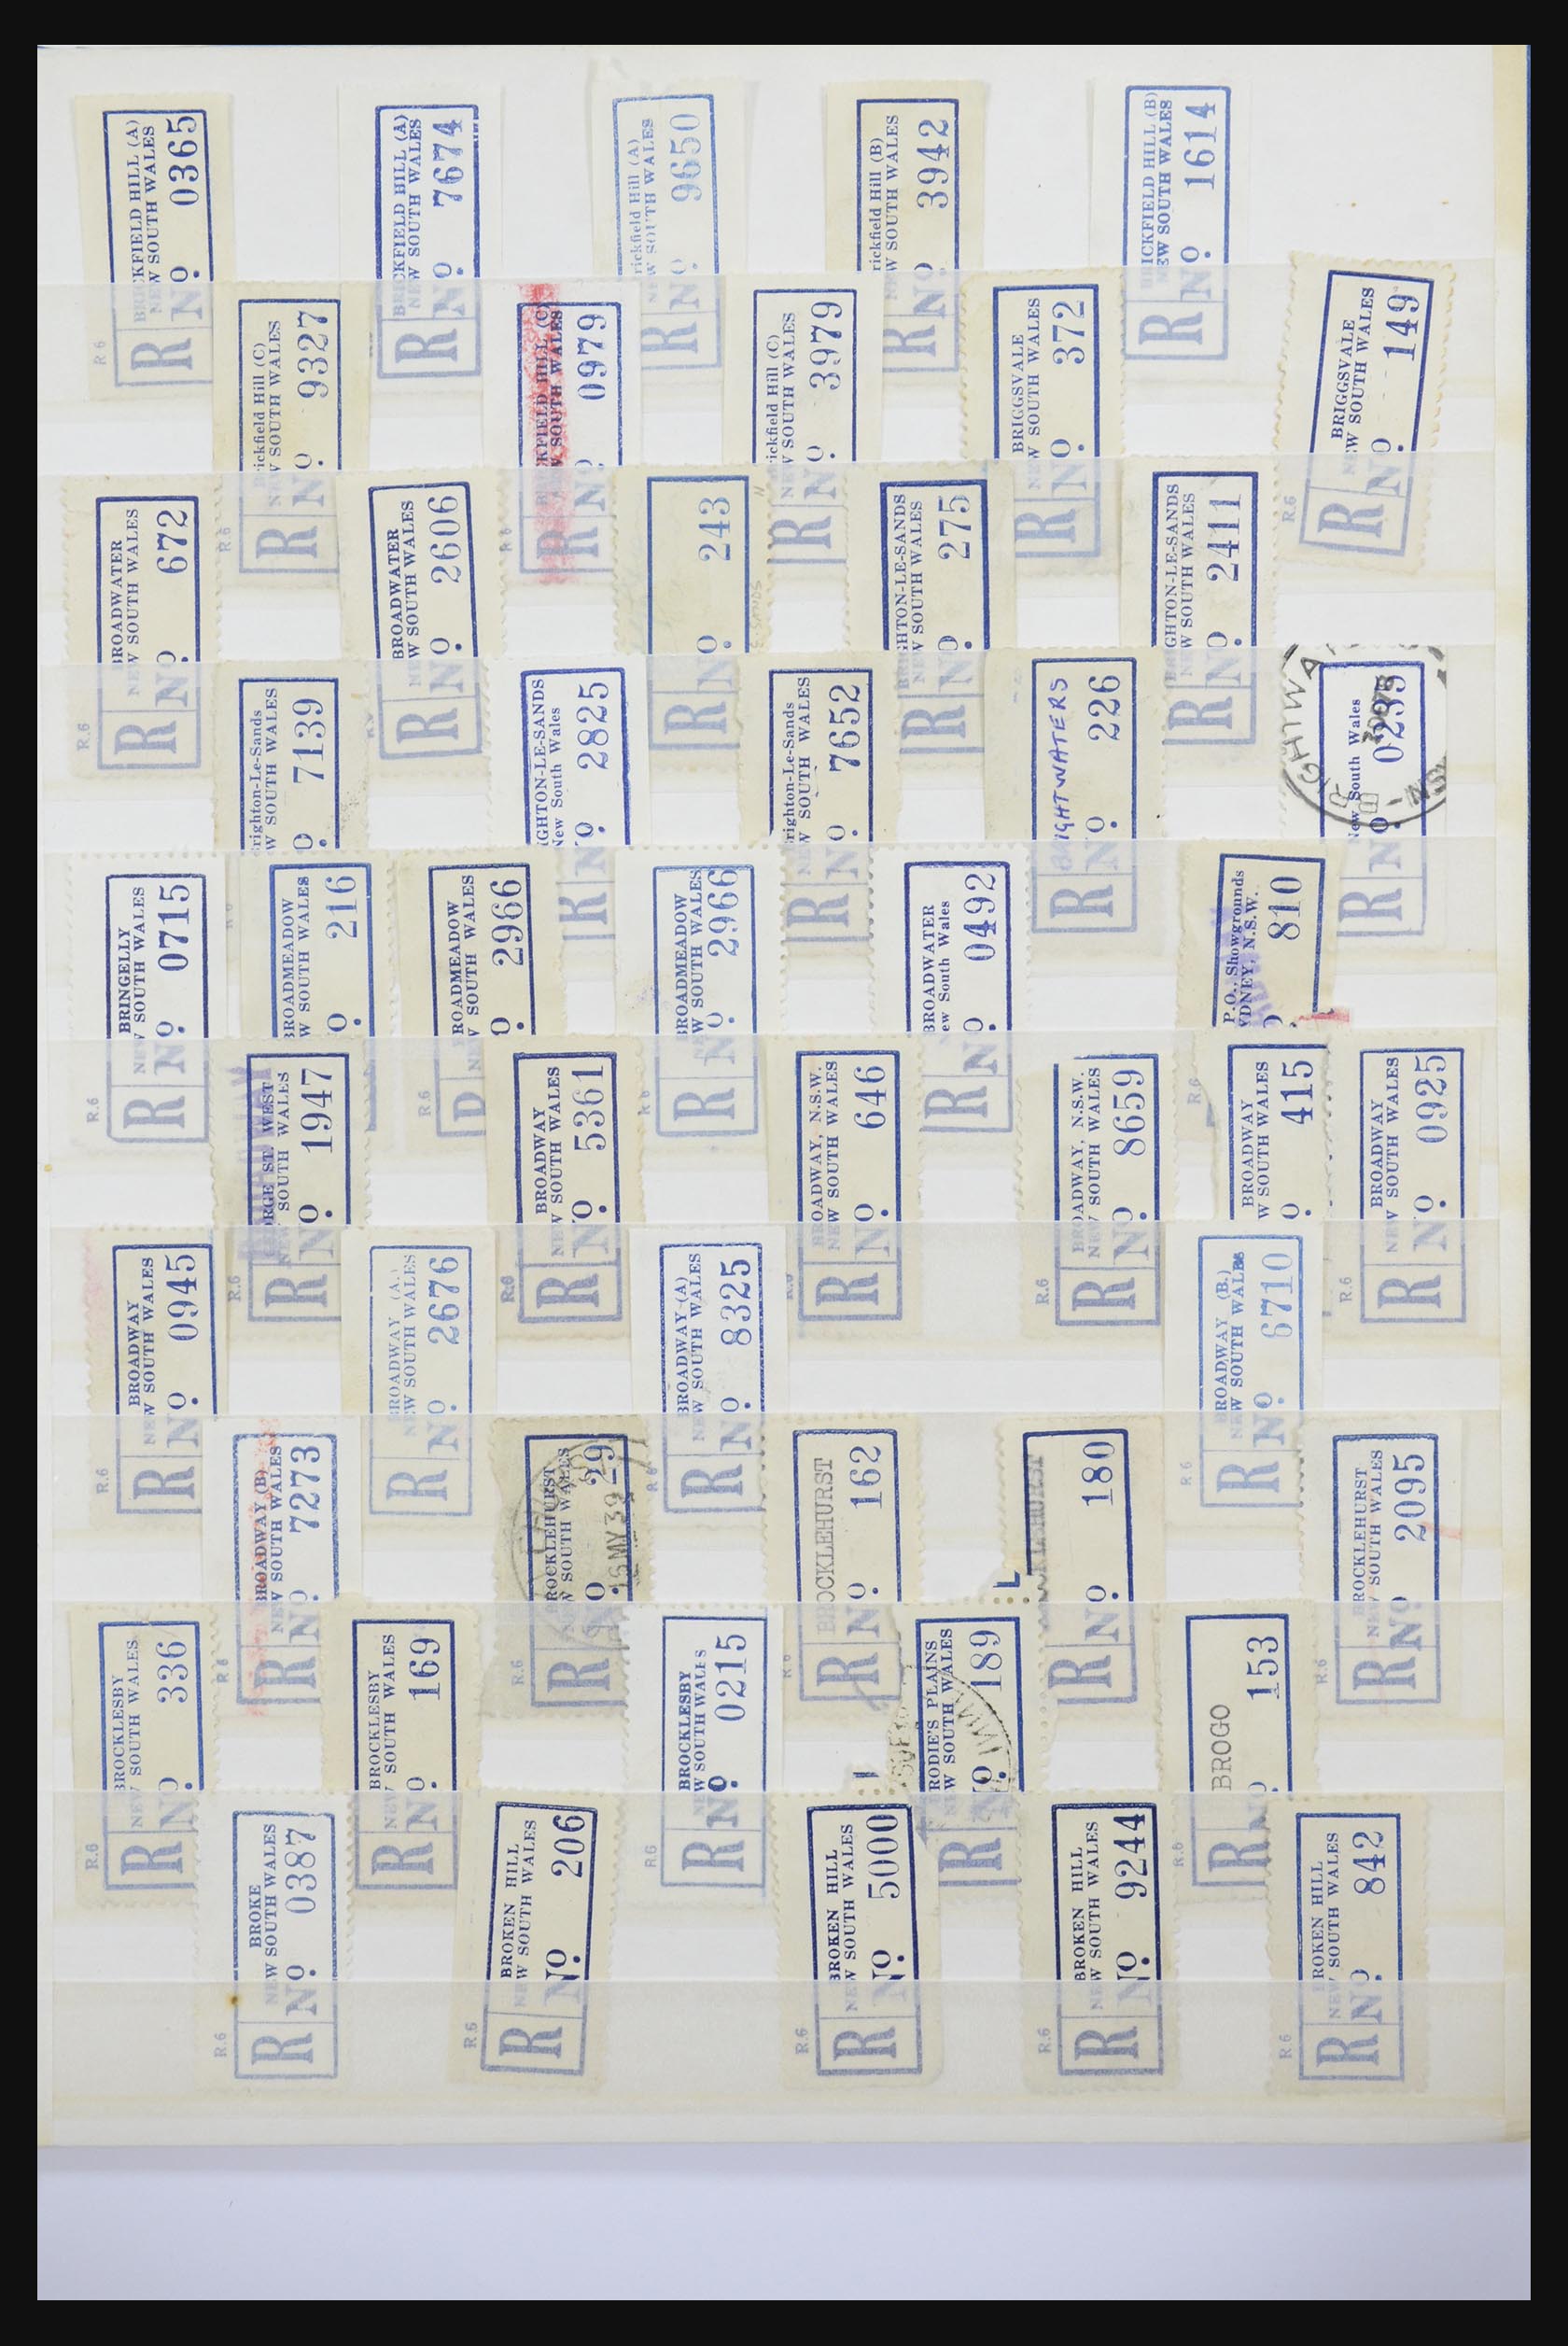 BRICKFIELD HILL (A)
NEW SOUTH WALES
R No. 0365
R 6
BRICKFIELD HILL (A)
NEW SOUTH WALES
R No. 7674
rickfield Hill (A)
NEW SOUTH WALES
R No 9650
rickfield Hill (B)
W SOUTH WALES
R No 3942
RICKFIELD HILL (B)
NEW SOUTH WALES
R No. 1614
rickfield Hill (C)
NEW SOUTH WALES
R No. 9327
R.6
CKFIELD HILL (C)
W SOUTH WALES
R No 0979
R 6
rickfield Hill (C)
NEW SOUTH WALES
R No 3979
BRIGGSVALE
NEW SOUTH WALES
R No. 372
BRIGGSVALE
NEW SOUTH WALES
R No. 149
R.6
BROADWATER
NEW SOUTH WALES
R No. 672
R.6
BROADWATER
NEW SOUTH WALES
R No. 2606
R No. 243
GHTON-LE-SANDS
NEW SOUTH WALES
R No. 275
GHTON-LE-SANDS
NEW SOUTH WALES
R No. 2411
righton-Le-Sands
W SOUTH WALES
No. 7139
GHTON-LE-SANDS
New South Wales
R No. 2825
righton-Le-Sands
W SOUTH WALES
R No. 7652
BRIGHTWATERS
R No. 226
GHTWA
New South Wales
R No 0235
BRINGELLY
NEW SOUTH WALES
R No 0715
R.6
BROADMEADOW
W SOUTH WALES
No. 216
ROADMEADOW
W SOUTH WALES
No. 2966
R.6
BROADMEADOW
NEW SOUTH WALES
R No. 2966
R 6
BROADWATER
New South Wales
R No. 0492
P.O., Showgrounds
YDNEY, N.S.W.
810
R.6
ORGE ST. WEST
NEW SOUTH WALES
R No 1947
R.6
BROADWAY
NEW SOUTH WALES
R No. 5361
R.6
BROADWAY, N.S.W.
NEW SOUTH WALES
R No. 646
BROADWAY, N.S.W.
NEW SOUTH WALES
R No. 8659
R.6
BROADWAY
W SOUTH WALES
No. 415
BROADWAY
NEW SOUTH WALES
R No. 0925
R.6
BROADWAY
NEW SOUTH WALES
R No. 0945
R.6
BROADWAY (A.)
NEW SOUTH WALES
R No. 2676
BROADWAY (A)
NEW SOUTH WALES
R No. 8325
R 6
BROADWAY (B.)
NEW SOUTH WALES
R No. 6710
R 6
BROADWAY (B)
NEW SOUTH WALES
R No 7273
R 6
BROCKLEHURST
W SOUTH WALES
R No. 29
16 MY 39
R.6
BROCKLEHURST
R No. 162
R No. 180
BROCKLEHURST
NEW SOUTH WALES
R No 2095
R.6
BROCKLESBY
NEW SOUTH WALES
R No 336
R.6
BROCKLESBY
NEW SOUTH WALES
R No. 169
BROCKLESBY
NEW SOUTH WALES
R No. 0215
R6
RODIE'S PLAINS
NEW SOUTH WALES
R No. 189
BROGO
R No 153
R.6
BROKE
NEW SOUTH WALES
R No. 0387
R.6
BROKEN HILL
NEW SOUTH WALES
R No. 206
R.6
BROKEN HILL
NEW SOUTH WALES
R No. 5000
R.6
BROKEN HILL
NEW SOUTH WALES
R No. 9244
R.6
BROKEN HILL
NEW SOUTH WALES
R No. 842
R.6